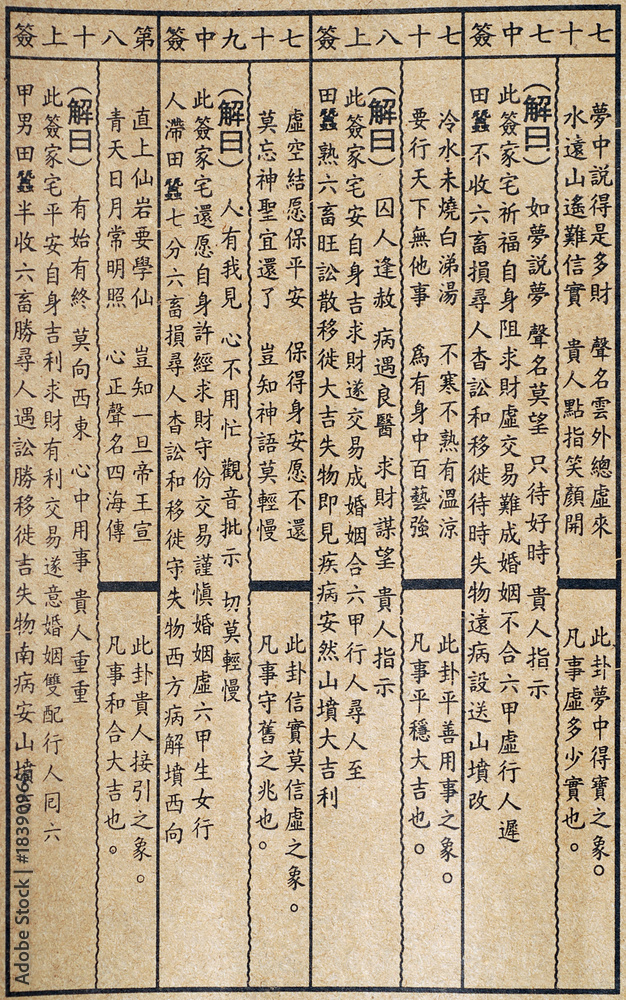 七十七中簽
夢中說得是多財 聲名雲外總虛來
水遠山遙難信實 貴人點指笑顏開
此卦夢中得寶之象。
凡事虛多少實也。
(解曰) 如夢說夢 聲名莫望 只待好時 貴人指示
此簽家宅祈福自身阻求財虛交易難成婚姻不合六甲虛行人遲
田蠶不收六畜損尋人杳訟和移徙待時失物遠病設送山墳改
七十八上簽
冷水未燒白沸湯 不寒不熟有溫涼
要行天下無他事 為有身中百藝強
此卦平善用事之象。
凡事平穩大吉也。
(解曰) 囚人逢赦 病遇良醫 求財謀望 貴人指示
此簽家宅安自身吉求財遂交易成婚姻合六甲行人尋人至
田蠶熟六畜旺訟散移徙大吉失物即見疾病安然山墳大吉利
七十九中簽
虛空結愿保平安 保得身安愿不還
莫忘神聖宜還了 豈知神語莫輕慢
此卦信實莫信虛之象。
凡事守舊之兆也。
(解曰) 人有我見 心不用忙 觀音批示 切莫輕慢
此簽家宅還愿自身許經求財守份交易謹慎婚姻虛六甲生女行
人滯田蠶七分六畜損尋人杳訟和移徙守失物西方病解墳西向
第八十上簽
直上仙岩要學仙 豈知一旦帝王宣
青天日月常明照 心正聲名四海傳
此卦貴人接引之象。
凡事和合大吉也。
(解曰) 有始有終 莫向西東 心中用事 貴人重重
此簽家宅平安自身吉利求財有利交易遂意婚姻雙配行人回六
甲男田蠶半收六畜勝尋人遇訟勝移徙吉失物南病安山墳
Adobe Stock | #183909